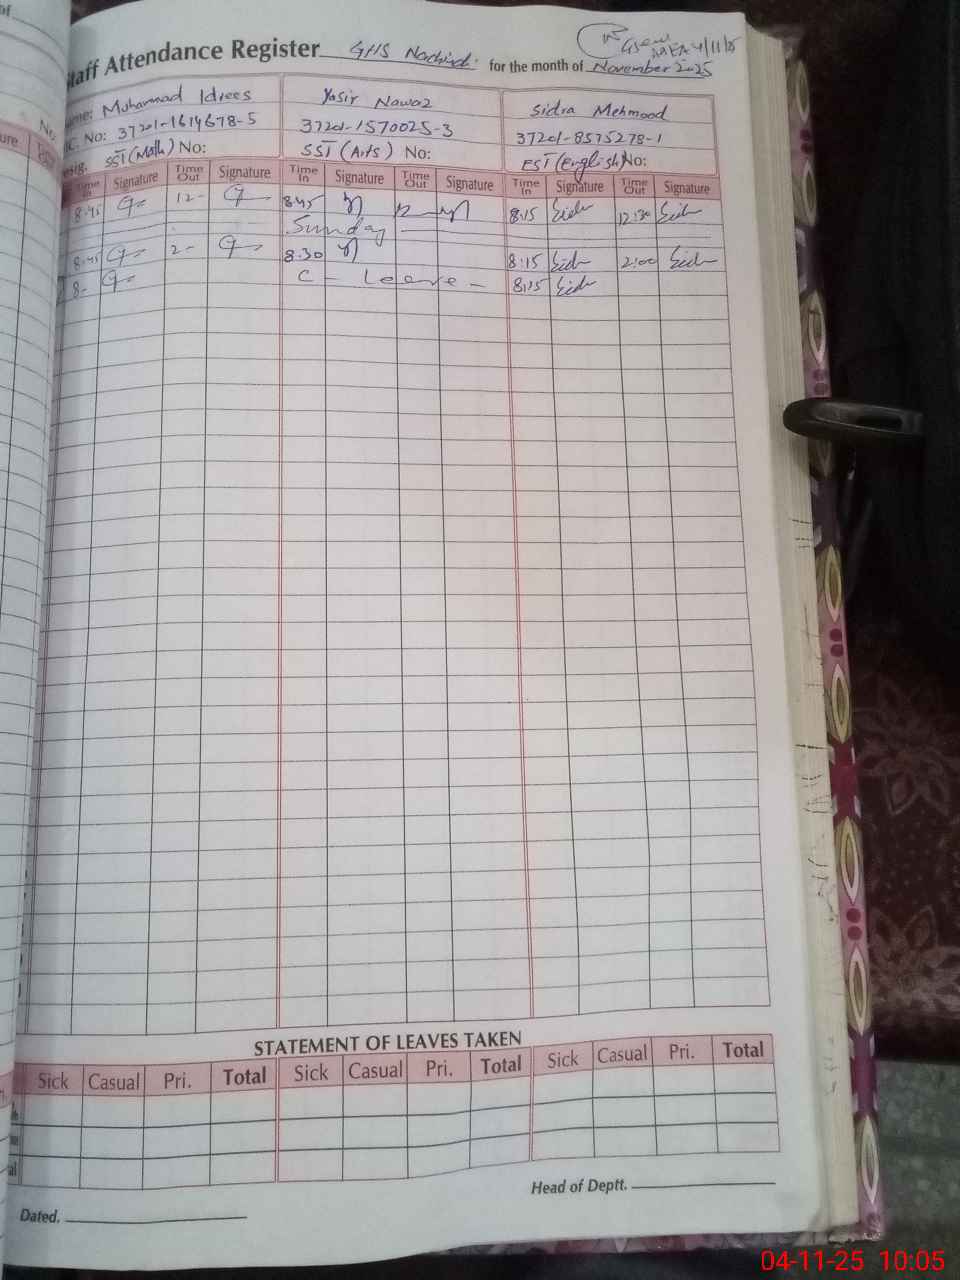 of
Staff Attendance Register GHS for the month of November 2025
MEA 4/11/25
No
ure
Name: Muhammad Idrees Yasir Nawaz Sidra Mehmood
NIC. No: 37201-1614678-5 37201-1570025-3 37201-8575278-1
Desig. SST (Math) No: SST (Arts) No: EST (English) No:
Time In Signature Time Out Signature Time In Signature Time Out Signature Time In Signature Time Out Signature
8:45 12- 8:45 12 8:15 12:30
Sunday
8:45 2- 8:30 8:15 2:00
8- C - Leave - 8:15
STATEMENT OF LEAVES TAKEN
Sick Casual Pri. Total Sick Casual Pri. Total Sick Casual Pri. Total
Head of Deptt.
Dated.
04-11-25 10:05